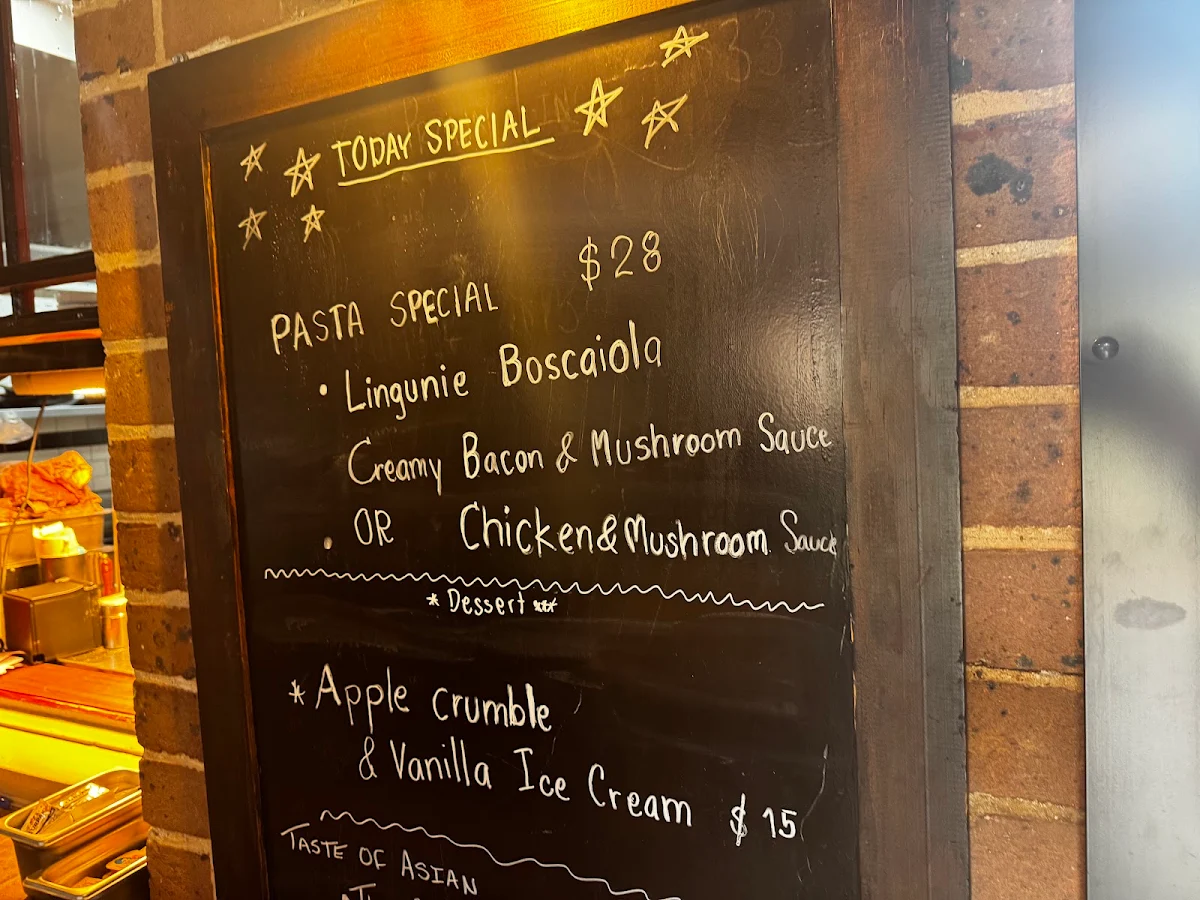 TODAY SPECIAL
PASTA SPECIAL $28
• Lingunie Boscaiola
Creamy Bacon & Mushroom Sauce
• OR Chicken & Mushroom Sauce
* Dessert ***
* Apple crumble
& Vanilla Ice Cream $15
TASTE OF ASIAN